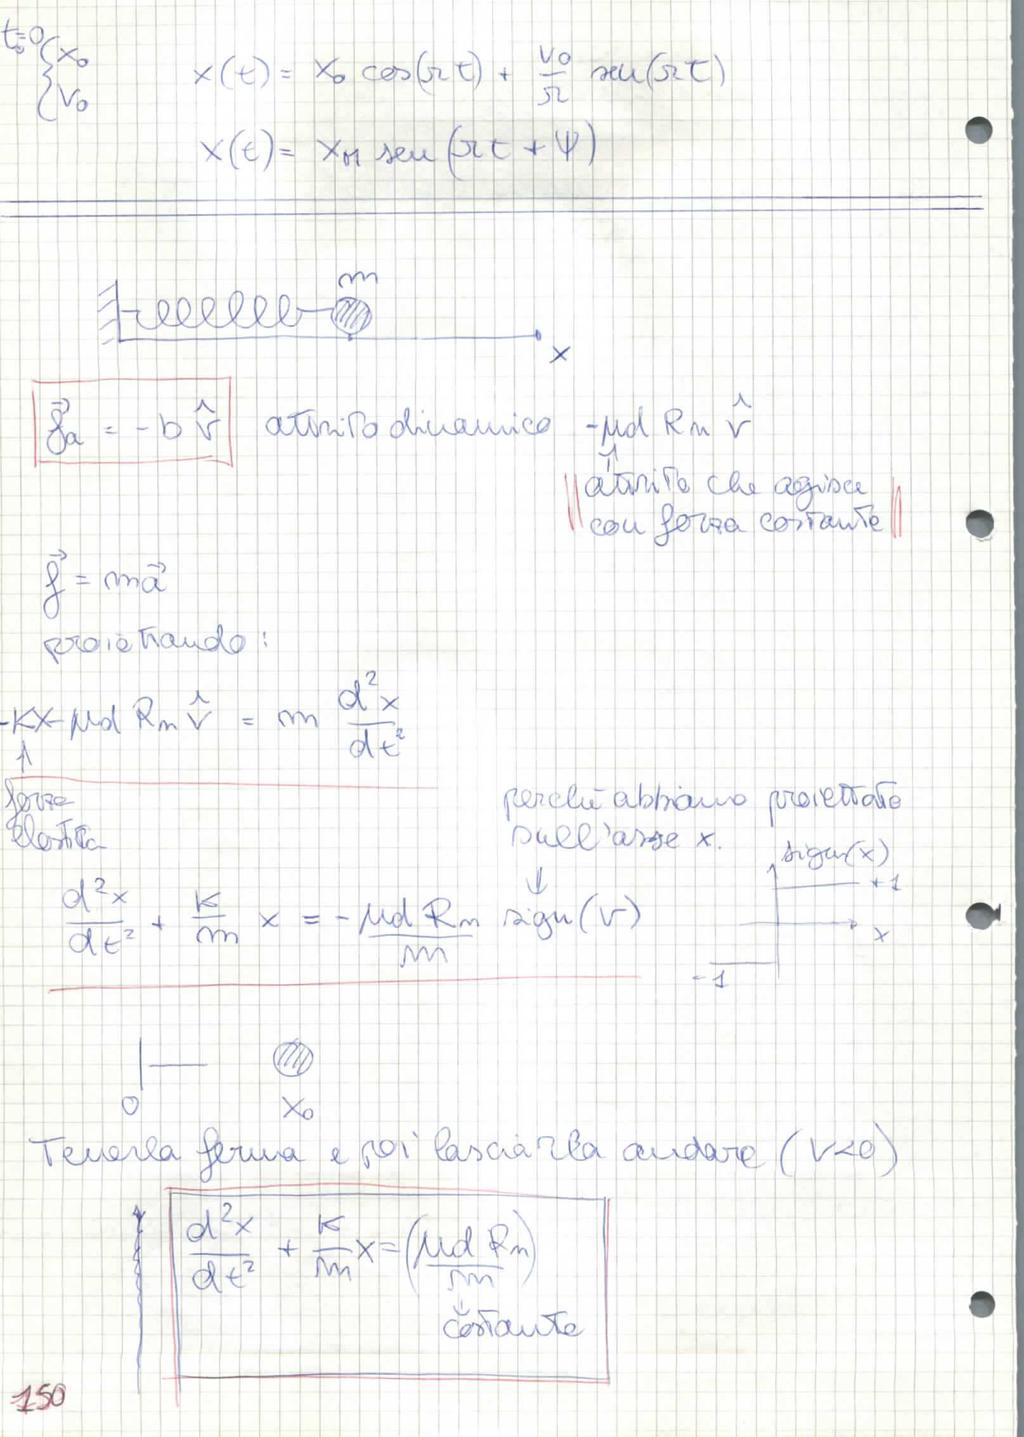 t₀=0 { x₀
v₀
x(t) = x₀ cos(Ωt) + v₀/Ω sen(Ωt)
x(t) = x_M sen(Ωt + Ψ)
m
x
f⃗a = -b v̂ attrito dinamico -μd Rn v̂
↑
attrito che agisce
con forza costante
f⃗ = ma⃗
proiettando:
-Kx - μd Rn v̂ = m d²x/dt²
↑
forza
elastica
perché abbiamo proiettato
sull'asse x.
↓
sign(x)
+1
x
-1
d²x/dt² + K/m x = - μd Rn/m sign(v)
0 x₀
Tenerla ferma e poi lasciarla andare (v<0)
d²x/dt² + K/m x = (μd Rn/m)
↓
costante
150